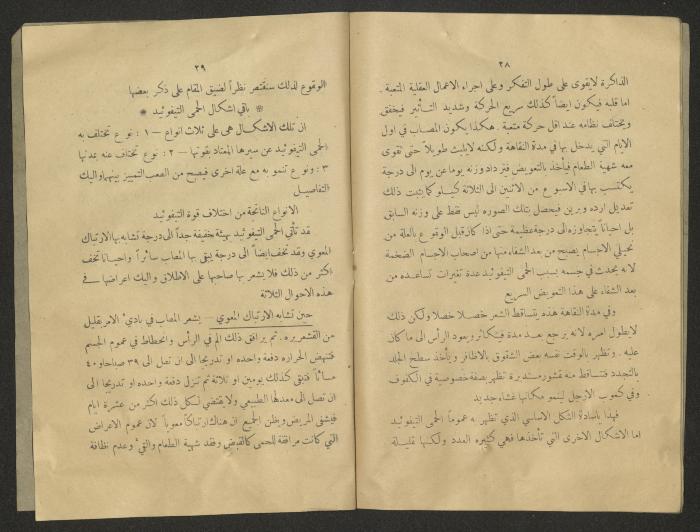 ٢٨
الذاكرة لايقوى على طول التفكر وعلى اجراء الاعمال العقلية المتعبة .
اما قلبه فيكون ايضاً كذلك سريع الحركة وشديد التــأثير فيخفق
ويختلف نظامه عند اقل حركة متعبة . هكذا يكون المصاب في اول
الايام التي يدخل بها في مدة النقاهة ولكنه لايلبث طويلاً حتى تقوى
معه شهية الطعام فيأخذ بالتعويض فتزداد وزنه يوما عن يوم الى درجة
يكتسب بها في الاسبوع من الاثنين الى الثلاثة كيـلو كما يثبت ذلك
تعديل ارده وبرين فيحصل بتلك الصوره ليس فقط على وزنه السابق
بل احياناً يتجاوزه الى درجة عظيمة حتى اذا كان قبل الوقوع بالعلة من
نحيلي الاجسام يصبح من بعد الشفاء منها من اصحاب الاجسام الضخمة
لانه يحدث في جسمه بسبب الحمى التيفوئيد عدة تغيرات تساعـده من
بعد الشفاء على هذا التعويض السريع
وفي مدة النقاهة هذه يتساقط الشعر خصـلا خصلا ولكن ذلك
لايطول امره لانه يرجع بعـد مدة فيتكاثر ويعود الرأس الى ما كان
عليه . وتظهر بالوقت نفسه بعض الشقوق بالاظافر ويأخذ سطح الجلد
بالتجدد فتتساقط منه قشور مستديرة تظهر بصفة خصوصية في الكفوف
وفي كعوب الارجل لينمو مكانها غشاء جديد
فهذا ياسادة الشكل الاساسي الذي تظهر به عموماً الحمى التيفوئيد
اما الاشكال الاخرى التي تأخذها فهي كثيره العدد ولكنها قليـلة
٢٩
الوقوع لذلك سنقتصر نظراً لضيق المقام على ذكر بعضها
* باقي اشكال الحمى التيفوئيد *
ان تلك الاشكـال هي على ثلاث انواع – ١ : نوع تختلف به
الحمى التيفوئيد عن سيرها المعتاد بقوتها – ٢ : نوع تختلف عنه بمدتها
٣ : ونوع تنمو به مع علة اخرى فيصبح من الصعب التمييز بينهما واليك
التفاصيـل
الانواع الناتجة من اختلاف قوة التيفوئيد
قد تأتي الحمى التيفوئيد بهيئة خفيفة جداً الى درجة تشابه بها الارتباك
المعوي وقد تخف ايضاً الى درجة يبقى بها المصاب سائراً واحيـانا تخف
اكثر من ذلك فلا يشعر بها صاحبها على الاطلاق واليك اعراضها في
هذه الاحوال الثلاثة
حين تشابه الارتباك المعوي – يشعر المصاب في بادئ الامر بقليل
من القشعريره . ثم يرافق ذلك الم في الرأس وانحطاط في عموم الجسم
فتنهض الحراره دفعة واحده او تدريجا الى ان تصل الى ٣٩ صباحا و٤٠
مساءً فتبقى كذلك يومين او ثلاثة ثم تنزل دفعة واحده او تدريجا الى
ان تصل الى معدلها الطبيعي ولايقتضي لكل ذلك اكثر من عشرة ايام
فيشفى المريض ويظن الجميع ان هناك ارتباكاً معوياً لان عموم الاعراض
التي كانت مرافقة للحمى كالقبض وفقد شهية الطعام والقيء وعدم نظافة